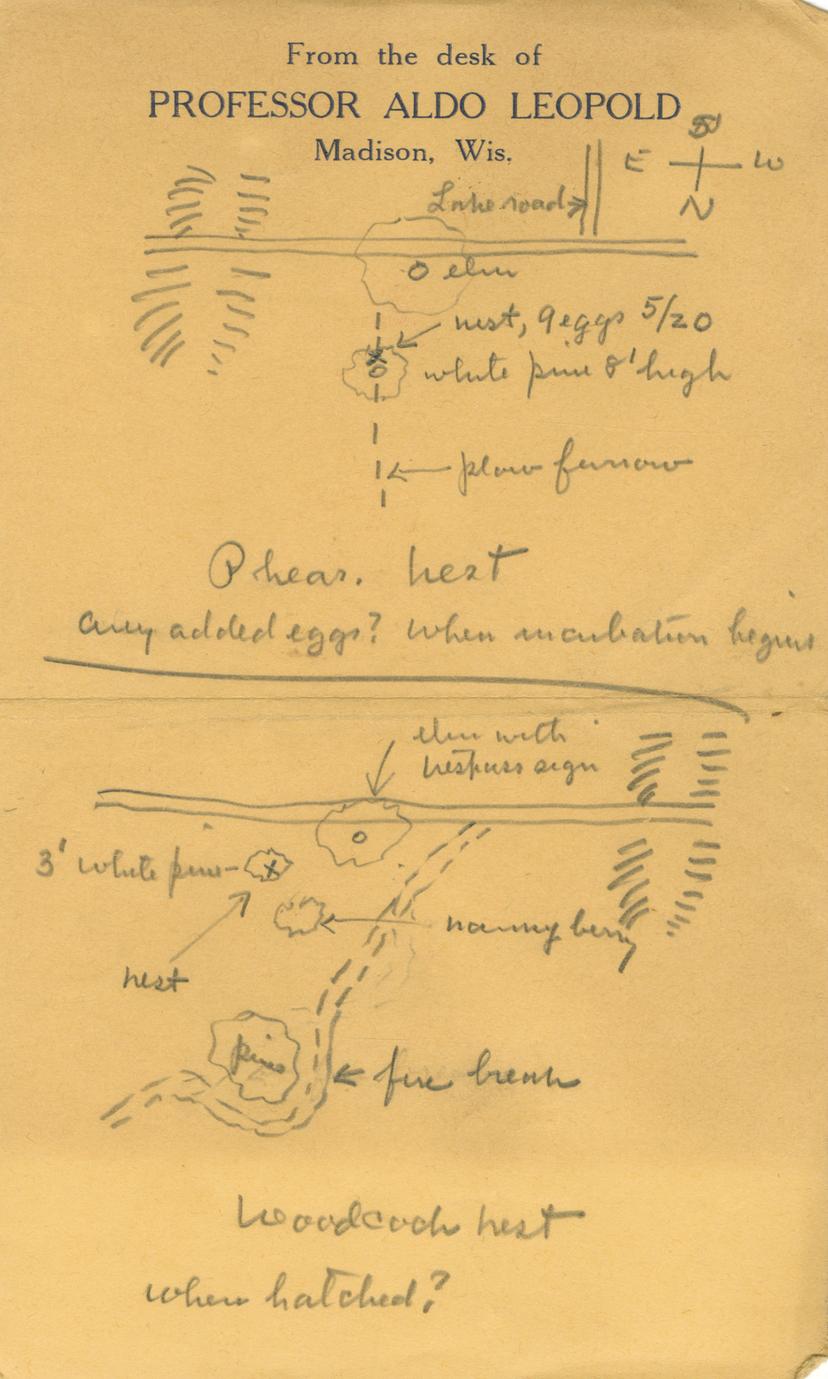 From the desk of
PROFESSOR ALDO LEOPOLD
Madison, Wis.
S
E W
N
Lake road
elm
nest, 9 eggs 5/20
white pine 8' high
plow furrow
Pheas. nest
any added eggs? When incubation begins
elm with
trespass sign
3' white pine
nannyberry
nest
pines
fire break
Woodcock nest
when hatched?